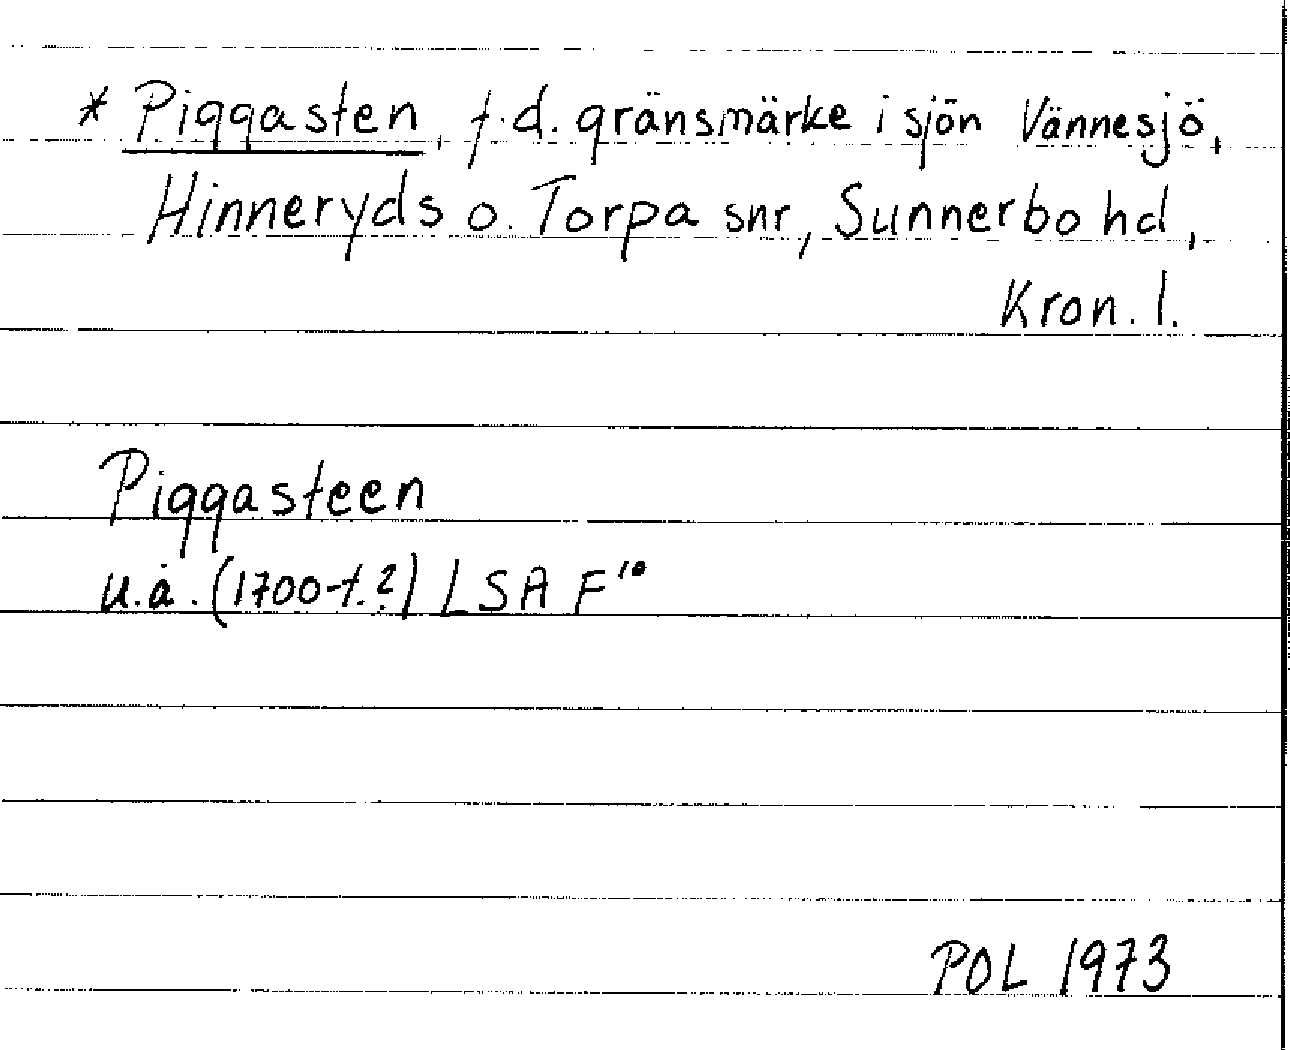 * Piggasten, f.d. gränsmärke i sjön Vännesjö,
Hinneryds o. Torpa snr, Sunnerbo hd,
Kron. l.
Piggasteen
u.å. (1700-t.?) LSA F¹⁰
POL 1973